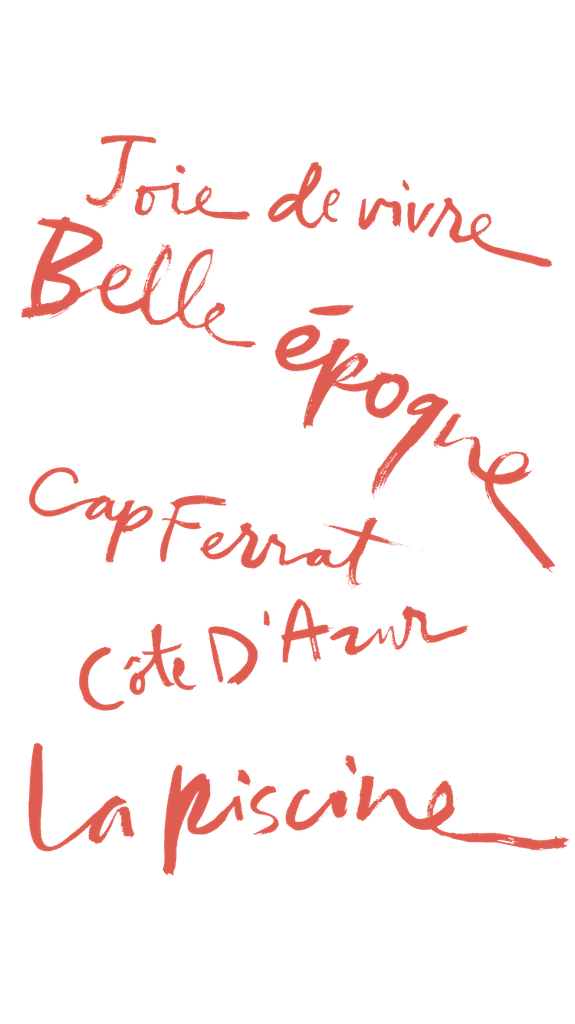 Joie de vivre
Belle époque
Cap Ferrat
Côte D'Azur
La piscine